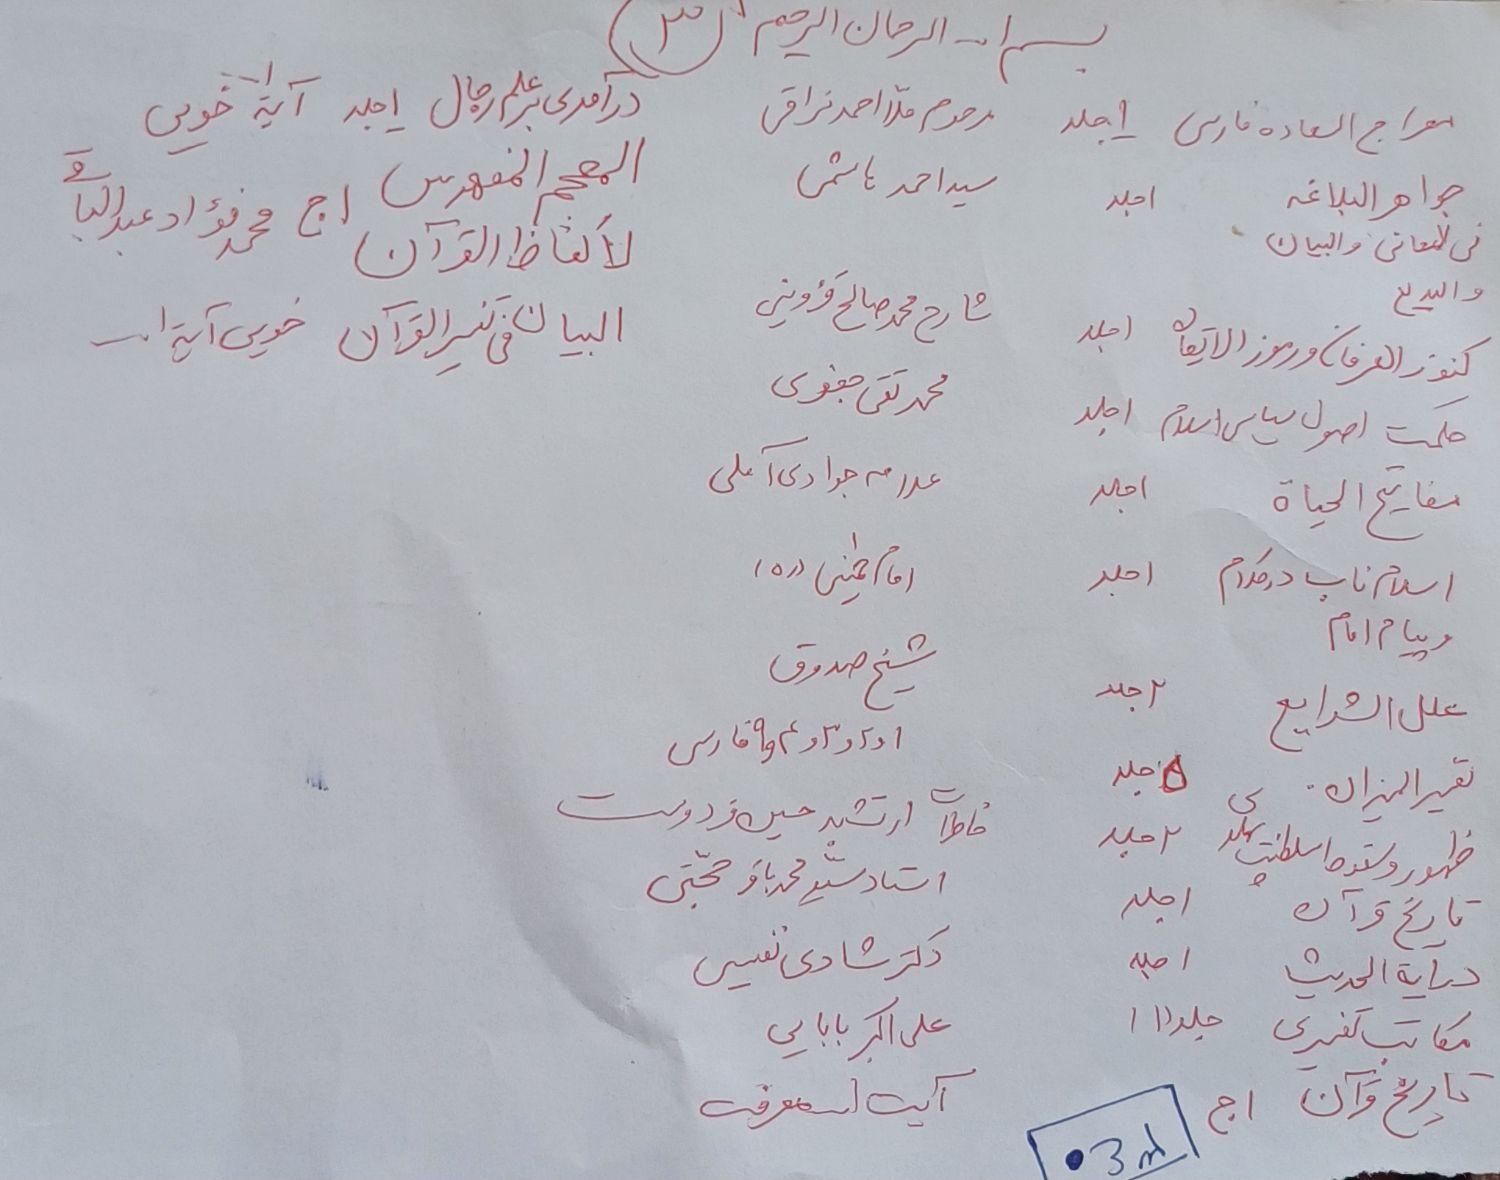 بسم ا... الرحمان الرحیم (۳)
معراج السعاده فارسی ۱جلد مرحوم ملّا احمد نراقی
جواهر البلاغه ۱جلد سید احمد هاشمی
فی المعانی والبیان
والبدیع
کنوز العرفان و رموز الایقان ۱جلد شارح محمد صالح قزوینی
حکمت اصول سیاسی اسلام ۱جلد محمد تقی جعفری
مفاتیح الحیاة ۱جلد علامه جوادی آملی
اسلام ناب در کلام ۱جلد امام خمینی (ره)
و پیام امام
علل الشرایع ۲جلد شیخ صدوق
تفسیر المیزان ۵جلد ۱و۲و۳و۴و۹ فارسی
ظهور و سقوط سلطنت پهلوی ۲جلد خاطرات ارتشبد حسین فردوست
تاریخ قرآن ۱جلد استاد سیّد محمد باقر حجّتی
درایة الحدیث ۱جلد دکتر شادی نفیسی
مکاتب تفسیری جلد(۱) ۱ علی اکبر بابایی
تاریخ قرآن ۱ج آیت ا... معرفت
در آمدی بر علم رجال ۱جلد آیة ا... خویی
المعجم المفهرس
لألفاظ القرآن ۱ج محمد فؤاد عبدالباقی
البیان فی تفسیر القرآن خویی آیة ا...
3